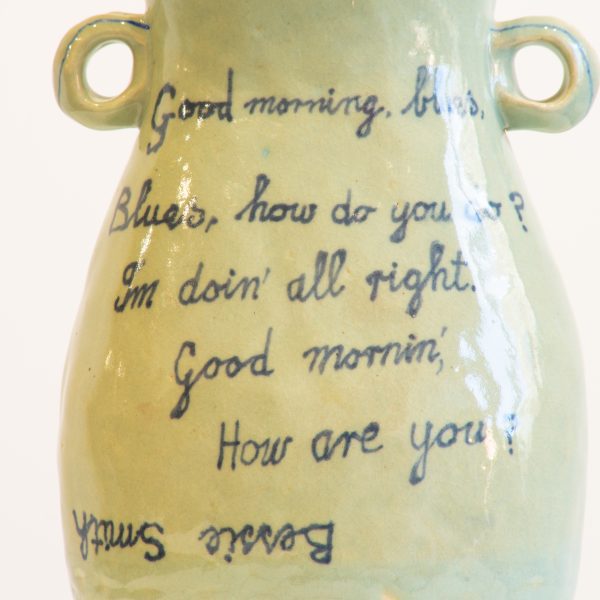 Good morning, blues.
Blues, how do you do?
I'm doin' all right.
Good mornin',
How are you?
Bessie Smith